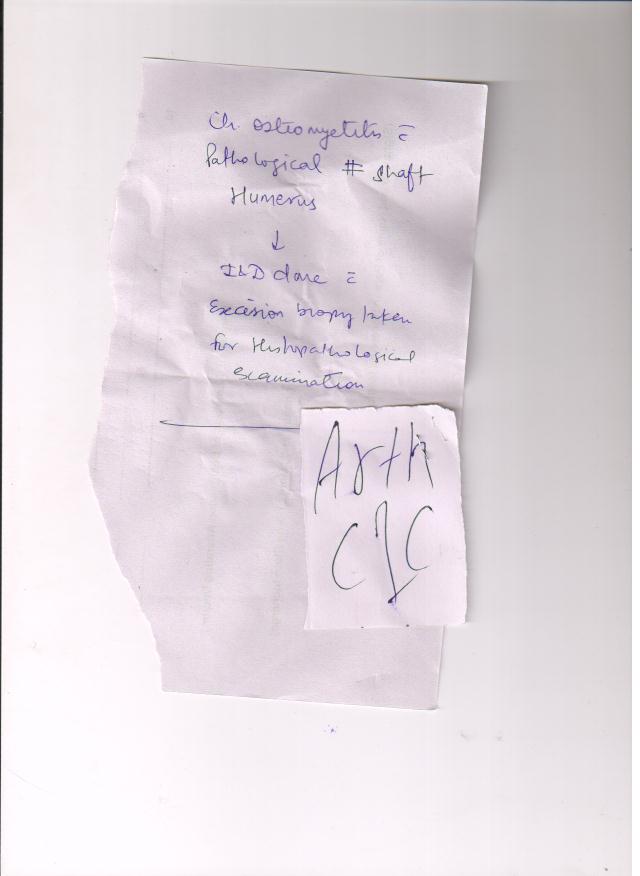 Ch. osteomyetitis c̄
Pathological # shaft
Humerus
↓
I&D done c̄
Excision biopsy taken
for Histopathological
examination